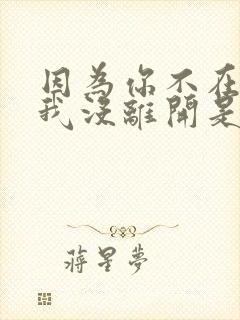 因為你不在
我沒離開是
蔣星夢